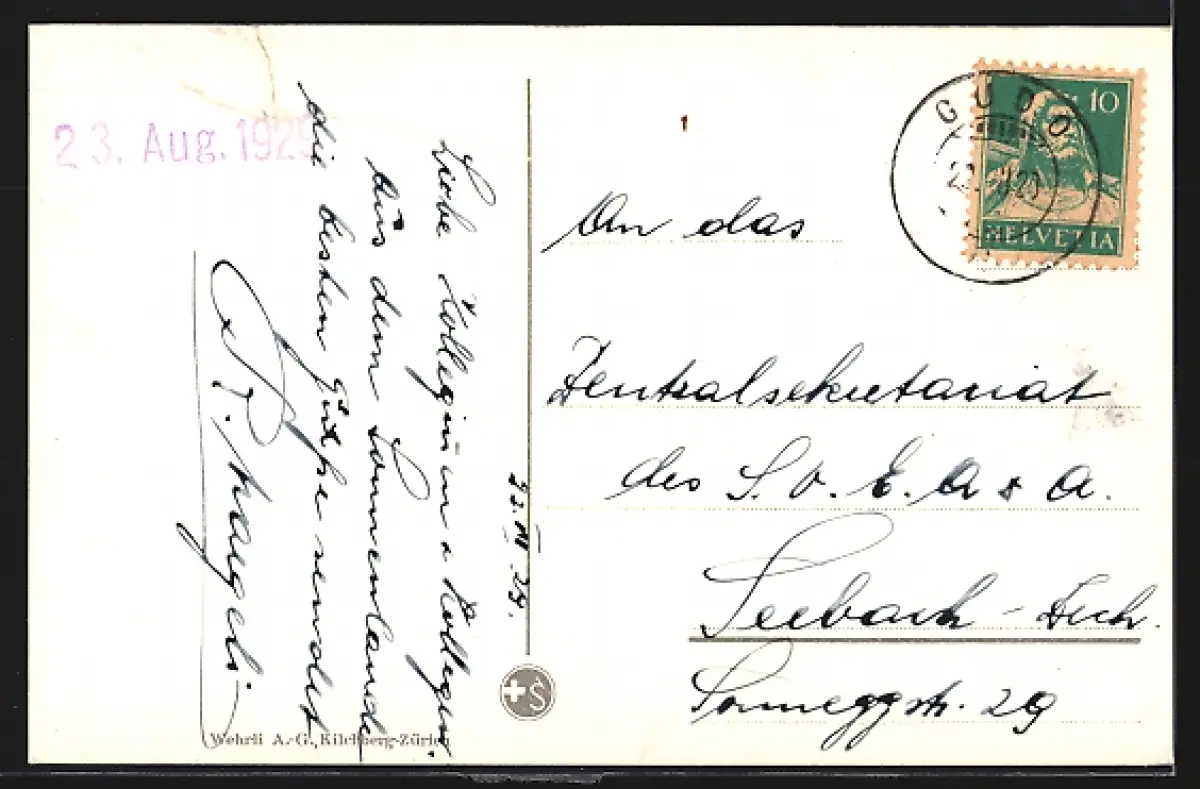 23. Aug. 1929
22. VIII. 29.
Liebe Kollegin u. Kollegen
Aus dem Sonnenlande
die besten Grüsse sendet
P. Naegeli
1
GUDO
10
HELVETIA
An das
Zentralsekretariat
des S. V. E. A & A.
Seebach - Zch.
Sonneggstr. 29
Wehrli A.-G., Kilchberg-Zürich